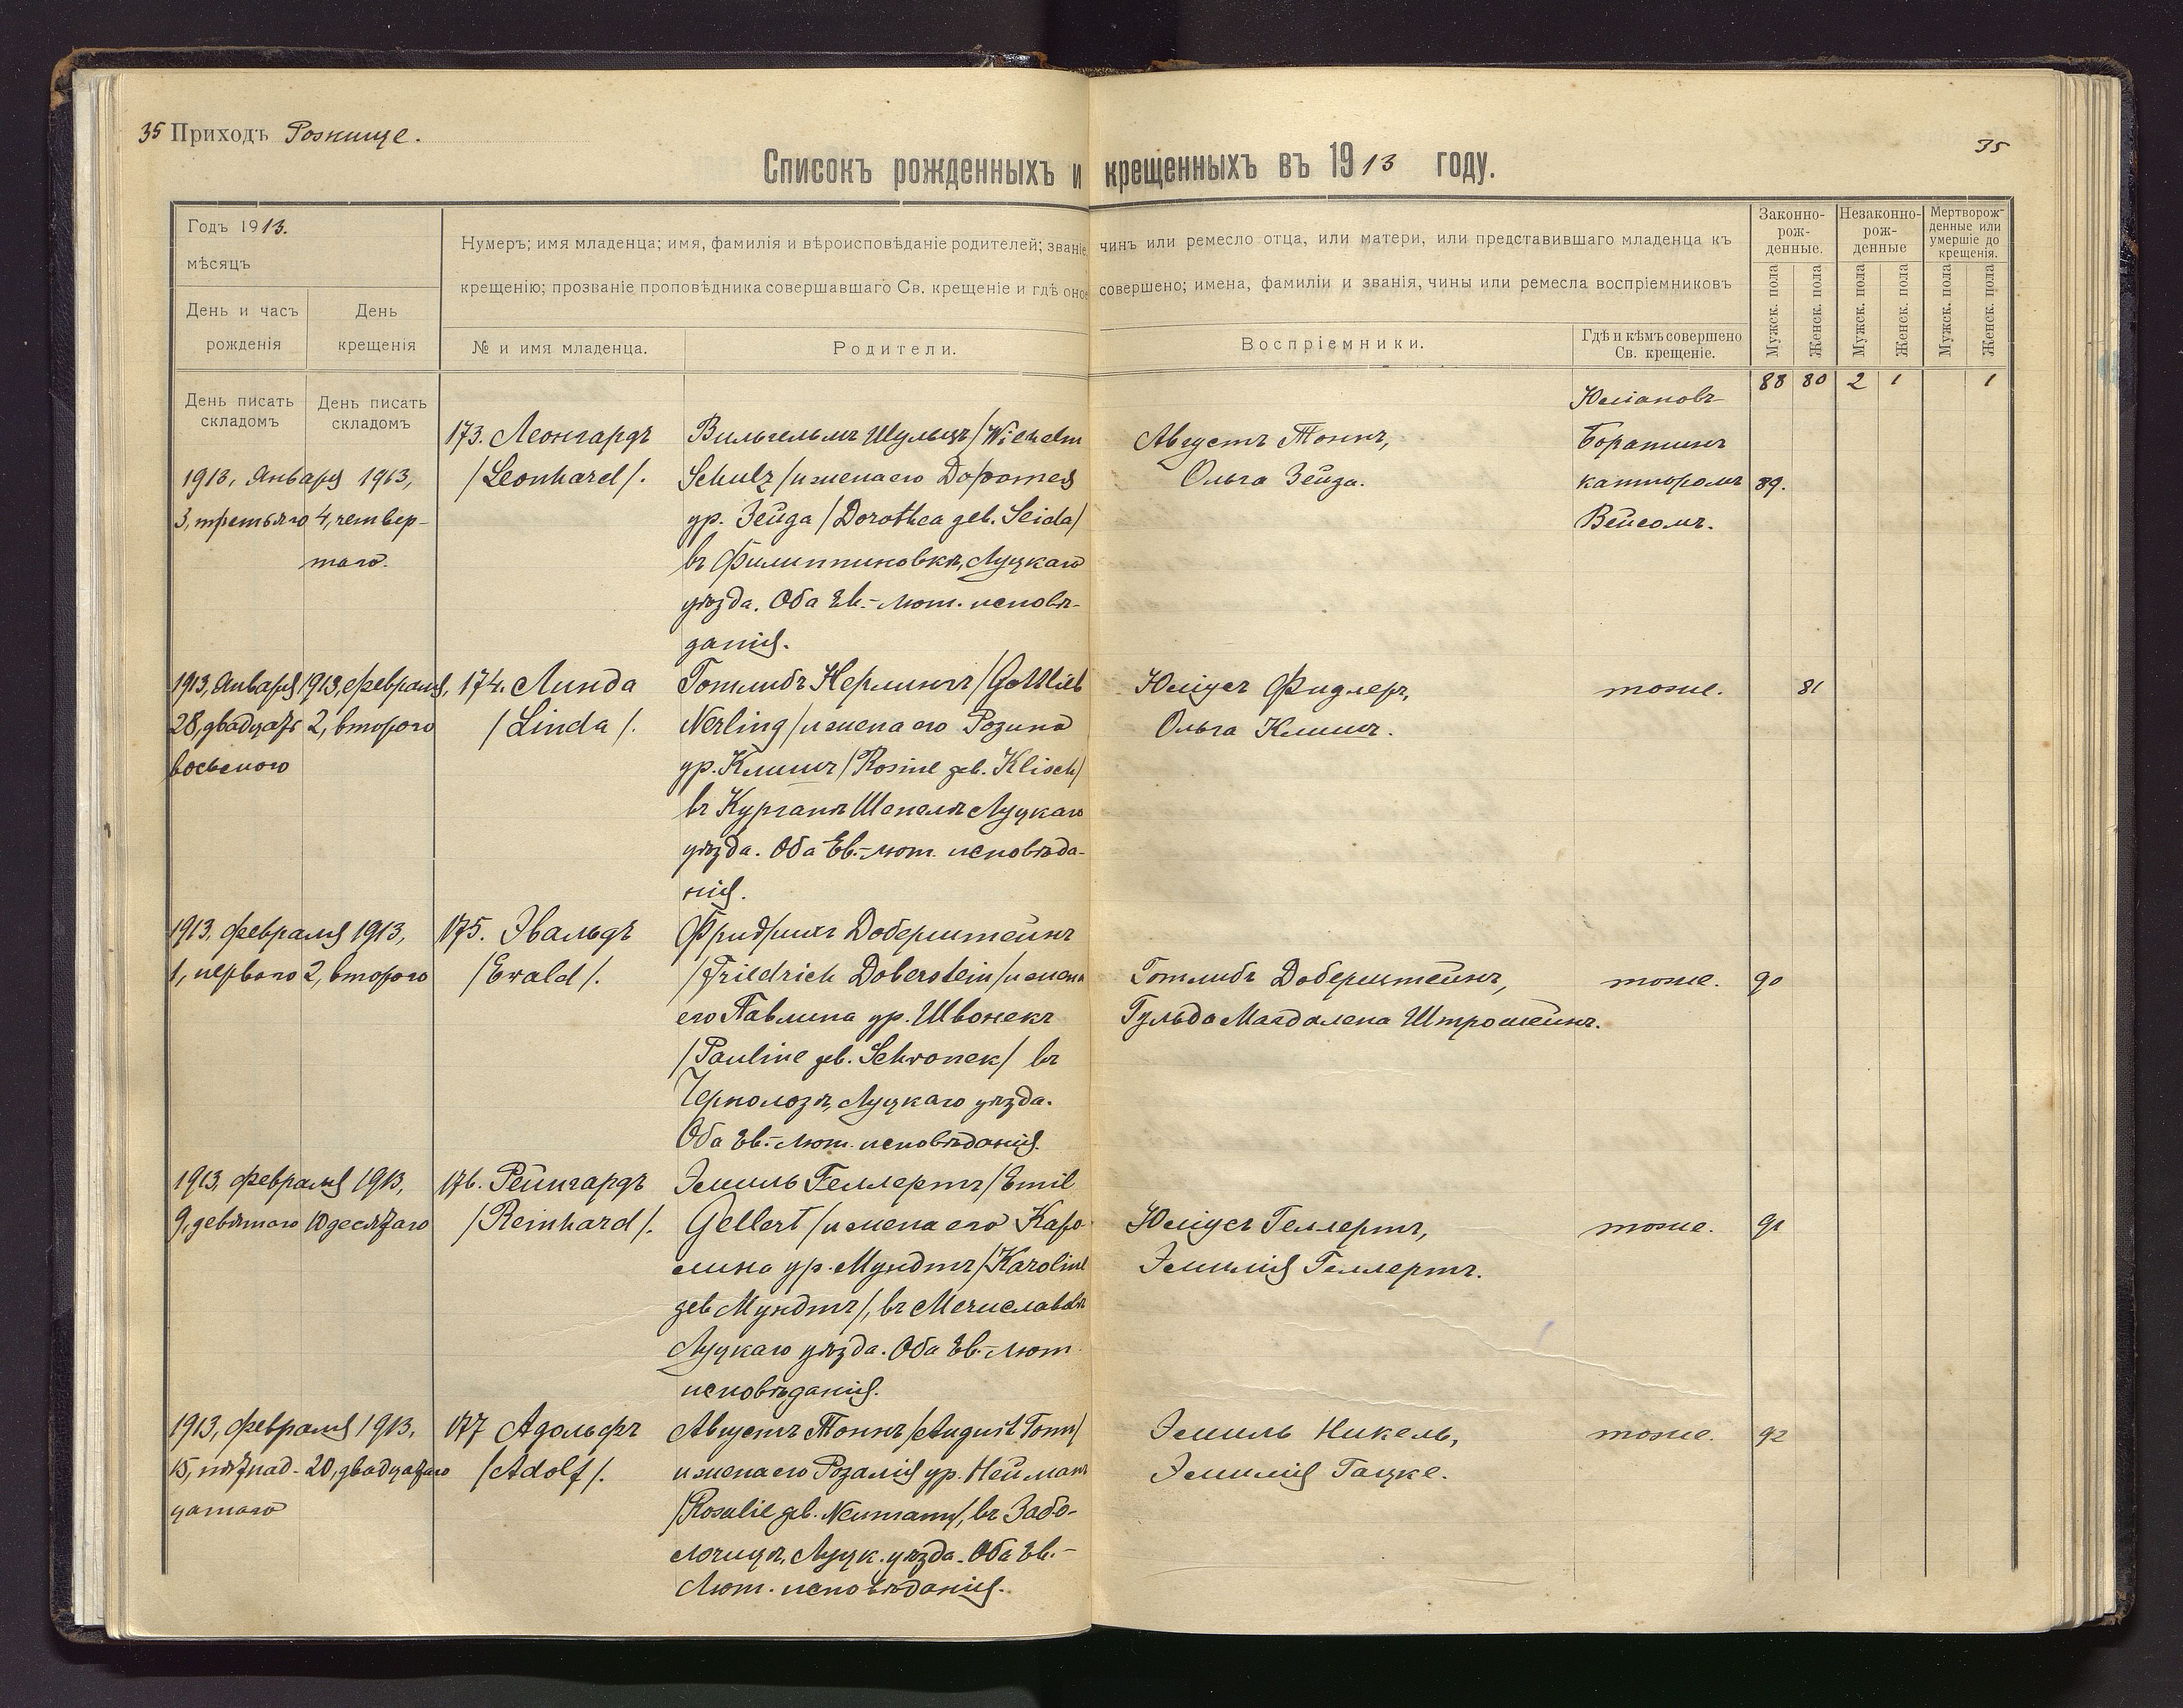 35 Приходъ Рожище.
35
Списокъ рожденныхъ и крещенныхъ въ 1913 году.
Годъ 1913.
мѣсяцъ
День и часъ рожденія
День крещенія
Нумеръ; имя младенца; имя, фамилія и вѣроисповѣданіе родителей; званіе, чинъ или ремесло отца, или матери, или представившаго младенца къ
крещенію; прозваніе проповѣдника совершавшаго Св. крещеніе и гдѣ оное совершено; имена, фамиліи и званія, чины или ремесла воспріемниковъ
№ и имя младенца.
Родители.
Воспріемники.
Гдѣ и кѣмъ совершено
Св. крещеніе.
Законно-
рож-
денные.
Незаконно-
рож-
денные
Мертворож-
денные или
умершіе до
крещенія.
Мужск. пола
Женск. пола
Мужск. пола
Женск. пола
Мужск. пола
Женск. пола
88 80 2 1 1
День писать
складомъ
День писать
складомъ
1913, Января 1913,
3, третьяго 4, четвер-
таго.
173. Леонгардъ
/Leonhard/.
Вильгельмъ Шульцъ /Wilhelm
Schulz/ и жена его Доротея
ур. Зейда /Dorothea geb. Seida/
въ Филиппиновкѣ, Луцкаго
уѣзда. Оба Ев.-Лют. исповѣ-
данія.
Августъ Тоннъ,
Ольга Зейда.
Юліановъ
Боратинъ
канторомъ
Вейсомъ.
89.
1913, Января 1913, Февраля,
28, двадцать 2, второго
восьмого
174. Линда
/Linda/.
Готлибъ Нерлингъ /Gottlieb
Nerling/ и жена его Розина
ур. Клишъ /Rosine geb. Klisch/
въ Курганѣ Шепелѣ Луцкаго
уѣзда. Оба Ев.-Лют. исповѣда-
нія.
Юліусъ Фидлеръ,
Ольга Клишъ.
тоже.
81
1913, Февраля 1913,
1, перваго 2, второго
175. Эвальдъ
/Ewald/.
Фридрихъ Доберштейнъ
/Friedrich Doberstein/ и жена
его Павлина ур. Швонекъ
/Pauline geb. Schwonek/ въ
Чернолозѣ, Луцкаго уѣзда.
Оба Ев.-Лют. исповѣданія.
Готлибъ Доберштейнъ,
Гульда Магдалена Штрошейнъ.
тоже.
90
1913, Февраля 1913,
9, девятаго 10 десятаго
176. Рейнгардъ
/Reinhard/.
Эмиль Геллертъ /Emil
Gellert/ и жена его Каро-
лина ур. Мундтъ /Karoline
geb Мундтъ/, въ Мечиславовѣ
Луцкаго уѣзда. Оба Ев.-Лют.
исповѣданія.
Юліусъ Геллертъ,
Эмилія Геллертъ.
тоже.
91
1913, Февраля 1913,
15, пятнад- 20, двадцатаго
цатаго
177 Адольфъ
/Adolf/.
Августъ Тоннъ /August Tonn/
и жена его Розалія ур. Нейманъ
/Rosalie geb. Neumann/, въ Забо-
лочицѣ, Луцк. уѣзда. Оба Ев.-
Лют. исповѣданія.
Эмиль Никель,
Эмилія Гацке.
тоже.
92